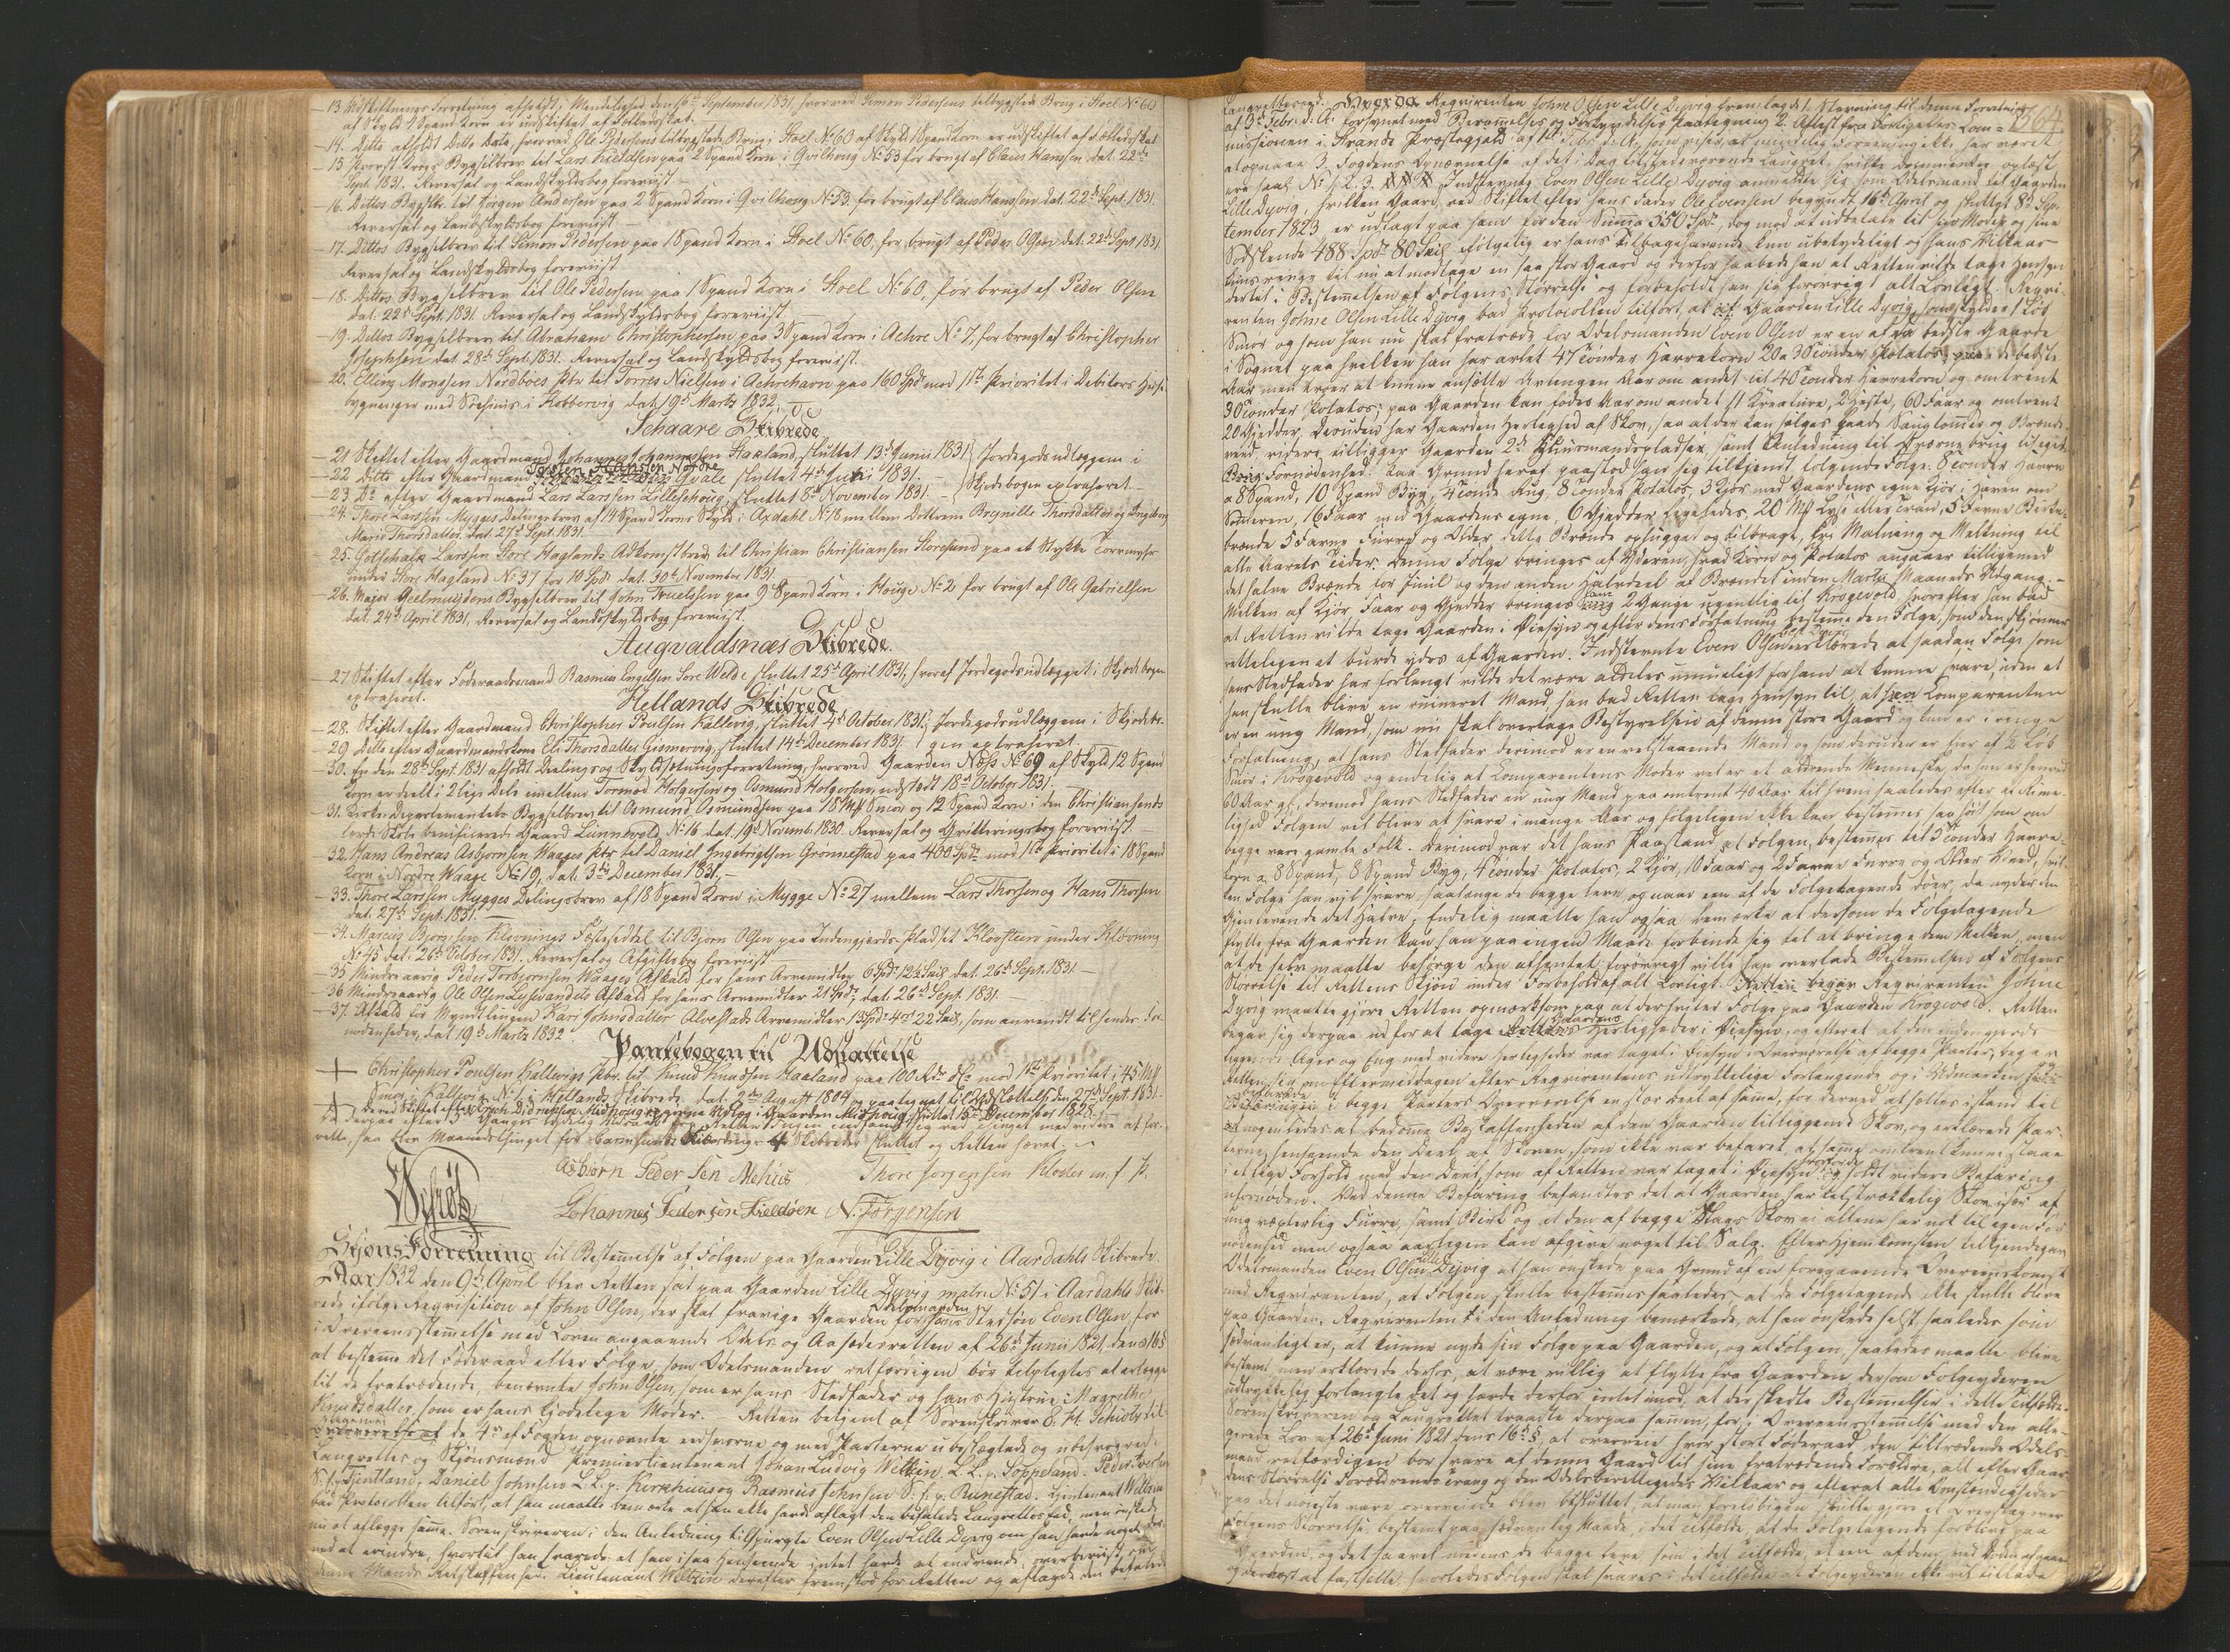 13. Udskiftnings Forretning afholdt, Mendelighed den 16de September 1831, hvorved Simon Pedersens tilbygslede Brug i Stoel No 60
af Skyld 1 Spand Korn er udskiftet af Fælledsskab.
14. Ditto afholdt Ditto Dato, hvorved Ole Pedersens tilbygslede Brug i Stoel No 60 af Skyld 1 Spand Korn er udskiftet af Fælledsskab
15. Bygselbrev til Lars paa 2 Spand Korn i Qvilhoug No 53 før brugt af Claus Hansen dat. 22de
Sept. 1831. Reversal og Landskyldsbog foreviist.
16. Dittos Bygselbr. til Jørgen Andersen paa 2 Spand Korn i Qvilhoug No 53. før brugt af Claus Hanssen dat. 22de Sept. 1831.
Reversal og Landskyldsbog foreviist.
17. Dittos Bygselbrev til Simon Pedersen paa 1 Spand Korn i Stoel No 60, før brugt af Peder Olsen dat. 22de Sept 1831
Reversal og Landskyldsbog foreviist.
18. Dittos Bygselbrev til Ole Pedersen paa 1 Spand Korn i Stoel No 60, før brugt af Peder Olsen
dat. 22de Sept. 1831. Reversal og Landskyldsbog foreviist.
19. Dittos Bygselbrev til Abraham Christophersen paa 3 Spand Korn i Achre No 7, før brugt af Christopher
Josephsen dat. 28de Sept. 1831. Reversal og Landskyldsbog foreviist.
20. Elling Monssen Nordboes Pbr. til Torres Nielsen i Achrehavn paa 160 Spd mod 1ste Prioritet i Debitors Huus
bygninger med i Kobbervig dat. 19de Marts 1832.
Schaare Skibrede
21 Skiftet efter Gaardmand Johannes Johannessen Haaland, sluttet 13de Junii 1831 Jordegodsudlæggene i
22 Ditto efter Gaardmand Torsten Hansen Nordre Qvale sluttet 4de 1831.
23. Do efter Gaardmand Lars Larssen Lilleschoug, sluttet 8de November 1831. Skjødebogen extraheret.
24. Thore Larssen Mygges Delingsbrev af 14 Spand Korns Skyld i Axdahl No 18 mellem Døttrene Pernille Thorsdatter og Ingeborg
Marie Thorsdatter, dat. 27de Sept. 1831.
25. Gotschalk Larssen Store Haglands Adkomstbrev til Christian Christiansen Storesund paa et Stykke Torvmyhr
under Store Hagland No 37 for 10 Spd. dat. 30te November 1831
26. Major Geelmuydens Bygselbrev til John Truelssen paa 9 Spand Korn i Houge No 2 før brugt af Ole Gabrielsen
dat. 24de April 1831, Reversal og Landskyldsbog foreviist.
Augvaldsnæs Skibrede.
27 Skiftet efter Føderaadsmand Rasmus Engelsen Sore Welde sluttet 25de April 1831, hvoraf Jordegodsudlægget i Skjødebogen
extraheret.
Hetlands Skibrede
28. Skiftet efter Gaardmand Christopher Poulsen Kallevig, sluttet 4de October 1831, Jordegodsudlæggene i Skjødebo-
29 Ditto efter Gaardmandskone Eli Thorsdatter Gismervig, sluttet 14de December 1831. gen extraheret.
30. En den 28de Sept. 1831 afholdt Deelings og Skyldsætningsforretning, hvorved Gaarden Næss No 69 af Skyld 12 Spand
Korn er deelt i 2 lige Dele imellem Tormod Holgersen og Osmund Holgersen, udstedt 18de October 1831.
31. Kirke-Departementets Bygselbrev til Osmund Osmundsen paa 18 Mk Smør og 12 Spand Korn i den Christiansands
lærde Skole beneficerede Gaard Lunnevold No 16 dat. 19de Novemb. 1830. Reversal og Qvitteringsbog foreviist.
32. Hans Andreas Asbjørnsen Waages Pbr. til Daniel Ingebrigtsen Grønnestad paa 400 Spd. mod 1ste Prioritet i 18 Spand
Korn i Nordre Waage No 19, dat. 3die December 1831.
33. Thore Larssen Mygges Delingsbrev af 18 Spand Korn i Mygge No 27 mellem Lars Thorsen og Hans Thorsen
dat. 27de Sept. 1831.
34. Marcus Bjørnsen Kløvnings Fæsteseddel til Bjørn Olsen paa Indengjerds Pladset Kloosteen under Kløvning
No 45 dat. 26de October 1831. Reversal og Afgiftsbog foreviist.
35 Mindreaarig Peder Torbjørnsen Waages Afkald for hans Arvemidler 6 Spd. 12½ Sk dat. 26de Sept. 1831.
36 Mindreaarig Ole Olsen Lysevandets Afkald for hans Arvemidler 21 Spd, dat. 26de Sept. 1831.
37. Afkald for Myndtlingen Kari Johnsdatter Alvestads Arvemidler 13 Spd. 4 ort 22 Sk, som anvendt til hendes For-
nødenheder, dat 19de Marts 1832.
Pantebogen til Udslettelse
Christopher Poulsen Kallevigs Pbr. til Knud Knudsen Haaland paa 100 Rdr. mod 1ste Prioritet i 45 Mk
Smør i Kallevig No i Hetlands Skibrede, dat. 2den August 1804 og paategnet til Udslettelse den 27de Sept. 1831.
det ved Skiftet efter Erich Didrichsen Midhoug Udlæg i Gaarden Midhoug sluttet 15de December 1828.
Da derpaa efter 3 Ganges lydelig Udraab for Retten Ingen indfandt sig ved Thinget med videre at for-
rette, saa blev Maanedsthinget for Carmsunds 4 Skibreder sluttet og Retten hævet.
Schiøtz
Asbiørn Pedersen Mehuus Thore Jørgensen Kloster m. f. P.
Johannes Pedersen Fieldøen N. Jørgensen
Skjøns Forretning til Bestemmelse af Følgen paa Gaarden Lille Dyvig i Aardahls Skibrede
Aar 1832 den 9de April blev Retten sat paa Gaarden Lille Dyvig matr. No 51 i Aardahls Skib-
rede ifølge Reqvisition af John Olsen, der skal fravige Gaarden for Odelsmanden hans Stedsøn Even Olsen, for
i Overeensstemmelse med Loven angaaende Odels og Aasædesretten af 26de Junii 1821, dens 16 §
at bestemme det Føderaad eller Følge, som Odelsmanden retfærdigen bør tilpligtes at erlægge
til de fratrædende, benævnte John Olsen, som er hans Stedfader og hans Hustrue Magrethe
Knudsdatter, som er hans kjødelige Moder. Retten betjent af Sorenskriver Schiøtz til-
ligemed de 4re af Fogden opnævnte eedsvorne og med Parterne ubeslægtede og ubesvogrede
Laugrettes og Skjønsmænd Premierlieutenant Johan Ludvig Weltzin L. L. p. Soppeland, Peder
Tjentland, Daniel Johnsen L L. p. Kirkhuus og Rasmus Johnsen S. f. p. Runestad. Lieutenant Weltzin
bad Protocollen tilført, at han maatte bemærke at han ikke havde aflagt den befalede Laugrettes Eed, men ønskede
nu at aflægge samme. Sorenskriveren i den Anledning tilspurgte Even Olsen Lille Dyvig om han havde noget der-
ved at erindre, hvortil han svarede at han i saa Henseende intet havde at indvende, overbeviist om
denne Mands Retskaffenhed. Lieutenant Weltzin derefter fremstod for Retten og aflagde den befalede
364.
Laugretteseed. Hvorda Reqvirenten Johne Olsen Lille Dyvig fremlagde 1. Stevning til denne Forretning
af 3de Febr. d. A. forsynet med Berammelses og Forkyndelses Paategning 2. Attest fra Forligelses Com-
missionen i Strands Præstegjeld af 10de Febr. d. A., som viser, at mindelig Foreening ikke har været
at opnaae 3. Fogdens Opnævnelse af det i Dag tilstedeværende Laugret, hvilke Documenter oplæst
ere saal. No 1. 2. 3. Indstevnte Even Olsen Lille Dyvig anmeldte sig som Odelsmand til Gaarden
Lille Dyvig, hvilken Gaard, ved Skiftet efter hans Fader Ole Evensen begyndt 16de April og sluttet 8de Sep-
tember 1823 er udlagt paa ham for den Summa 350 Spd., dog mod at udbetale til sin Moder og sine
Sødskende 488 Spd. 80 Sk. Følgelig er hans tilbagehavende kun ubetydeligt og hans Vilkaar
kuns ringe til nu at modtage en saa stor Gaard og derfor haabede han at Retten vilde tage Hensyn
dertil i Bestemmelsen af Følgens Størrelse og forbeholdt han sig forøvrigt alt Lovligt. Reqvi-
renten Johne Olsen Lille Dyvig bad Protocollen tilført, at Gaarden Lille Dyvig, som skylder 1 Løb
Smør og som han nu skal fratræde for Odelsmanden Even Olsen er en af de bedste Gaarde
i Sognet paa hvilken han har avlet 47 Tønder Havrekorn 20 a 30 Tønder Potatos, paa de bedste
Aar men troer at kunne ansætte Avlingen Aar om andet til 40 Tønder Havrekorn og omtrent
30 Tønder Potatos; paa Gaarden kan fødes Aar om andet 11 Kreature, 2 Heste, 60 Faar og omtrent
20 Gjedder. Desuden har Gaarden Herlighed af Skov, saa at der kan sælges baade Saugtømmer og Brænde-
veed, videre tilligger Gaarden 2de Huusmandspladser, samt Anledning til Qværnebrug til eget
Brug Fornødenhed. Paa Grund heraf paastod han sig tilkjendt følgende Følge: 8 Tønder Havre
a 8 Spand, 10 Spand Byg, 4 Tønde Rug, 8 Tønder Potatos, 3 Kjør med Gaardens egne Kjør i Haven om
Sommeren, 16 Faar med Gaardens egne, 6 Gjedder ligeledes, 20 Mk Lyse eller Tran, 5 Favne Birke-
brænde 5 Favne Furre og Older, dette Brænde ophugget og tilbragt, fri Malning og Meltning til
alle Aarets Tider. Denne Følge bringes af Yderen, hvad Korn og Potatos angaaer tilligemed
det halve Brænde for Juul og den anden Halvdeel af Brændet inden Marts Maaneds Udgang.
Melken af Kjør, Faar og Gjedder bringes ham 2 Gange ugentlig til Krogevold, hvorefter han bad
at Retten vilde tage Gaarden i Øiesyn og efter dens Forfatning bestemme den Følge, som den skjønner
retteligen at burde ydes af Gaarden. Indstevnte Even Olsen Lille Dyvig erklærede at saadan Følge som
hans Stedfader har forlangt vilde det være aldeles umueligt for ham at kunne svare, uden at
han skulle blive en ruineret Mand, han bad Retten tage Hensyn til, at han Comparenten
er en ung Mand, som nu skal overtage Bestyrelsen af denne store Gaard og kun er i ringe
Forfatning, at hans Stedfader derimod er en velstaaende Mand og som desuden er Eier af ½ Løb
Smør i Krogevold og endelig at Comparentens Moder vel er et aldrende Menneske, da hun er henved
60 Aar gl., derimod hans Stedfader en ung Mand paa omtrent 40 Aar til hvem saaledes efter al Rime-
lighed Følgen vil blive at svare i mange Aar og følgeligen ikke kan bestemmes saa stor som om
begge vare gamle Folk. Derimod var det hans Paastand at Følgen, bestemmes til 5 Tønder Havre-
korn a 8 Spand, 8 Spand Byg, 4 Tønder Potatos, 2 Kjør, 10 Faar og 2 Favne Furre og Older Veed, hvil-
ken Følge han vil svare, saalænge de begge leve og naar een af de Følgetagende døer, da nyder den
Gjenlevende det Halve; Endelig maatte han ogsaa bemærke at dersom de Følgetagende
flytte fra Gaarden kan han paa ingen Maade forbinde sig til at bringe dem Melken, men
at de selv maatte besørge den afhentet; forøvrigt ville han overlade Bestemmelsen af Følgens
Størrelse til Rettens Skjøn under Forbehold af alt Lovligt. Reqvirenten Johne
Dyvig maatte gjøre Retten opmærksom paa at der hviler Følge paa Gaarden Krogevold. Retten
begav sig derpaa ud for at tage Gaardens Herligheder i Øiesyn, og efterat at den indengjerds
liggende Ager og Eng med videre Herligheder var taget i Øiesyn i Overværelse af begge Parter, begav
Retten sig om Eftermiddagen efter Reqvirentens udtrykkelige Forlangende og i Udmarken
i begge Parters Overværelse en stor Deel af samme, for derved at sættes istand til
nogenledes at bedømme Beskaffenheden af den Gaarden tilliggende Skov, og erklærede Par-
terne, henseende den Deel af Skoven, som ikke var befaret, at samme omtrent kunne staae
i et lige Forhold med den Deel, som af Retten var taget i Øiesyn, og holdt videre Befaring
ufornøden. Ved denne Befaring befandtes det at Gaarden har tilstrækkelig Skov især af
ung væxterlig Furre, samt Birk og at den af begge Slags Skov ei allene har nok til egen For-
nødenhed men ogsaa aarligen kan afgive noget til Salg. Efter Hjemkomsten tilkjendegav
Odelsmanden Even Olsen Lille Dyvig at han ønskede paa Grund af en foregaaende Overeenskomst
med Reqvirenten, at Følgen skulle bestemmes saaledes at de Følgetagende ikke skulle blive
paa Gaarden. Reqvirenten i den Anledning bemærkede, at han ønskede helst, saaledes som
sædvanligt er, at kunne nyde sin Følge paa Gaarden, og at Følgen, saaledes maatte blive
bestemt men erklærede derhos, at være villig at flytte fra Gaarden, dersom Følgeyderen
udtrykkelig forlangte det og havde derfor intet imod, at der skedte Bestemmelser i dette Tilfælde.
Sorenskriveren og Laugrettet traadte derpaa sammen, for i Overeensstemmelse med den alle-
gerede Lov af 26de Juni 1821 dens 16de §, at overveie hvor stort Føderaad, den tiltrædende Odels-
mand retfærdigen bør svare af denne Gaard til sine fratrædende Forældre, alt efter Gaar-
dens Størrelse Forældrenes Trang og den Odelsberettigedes Vilkaar og efterat alle Omstændigheder
paa det nøieste vare overveiede blev besluttet, at man foreløbigen skulle gjøre et Overslag over
Følgens Størrelse, bestemt paa sædvanlig Maade, i det Tilfælde, at de Følgetagende forblive paa
Gaarden og det saavel medens de begge leve som i det Tilfælde, at een af dem ved Døden afgaaer
og dernæst at fastsætte, hvorledes Følgen skal svares i det Tilfælde at Følgeyderen ikke vil tillade